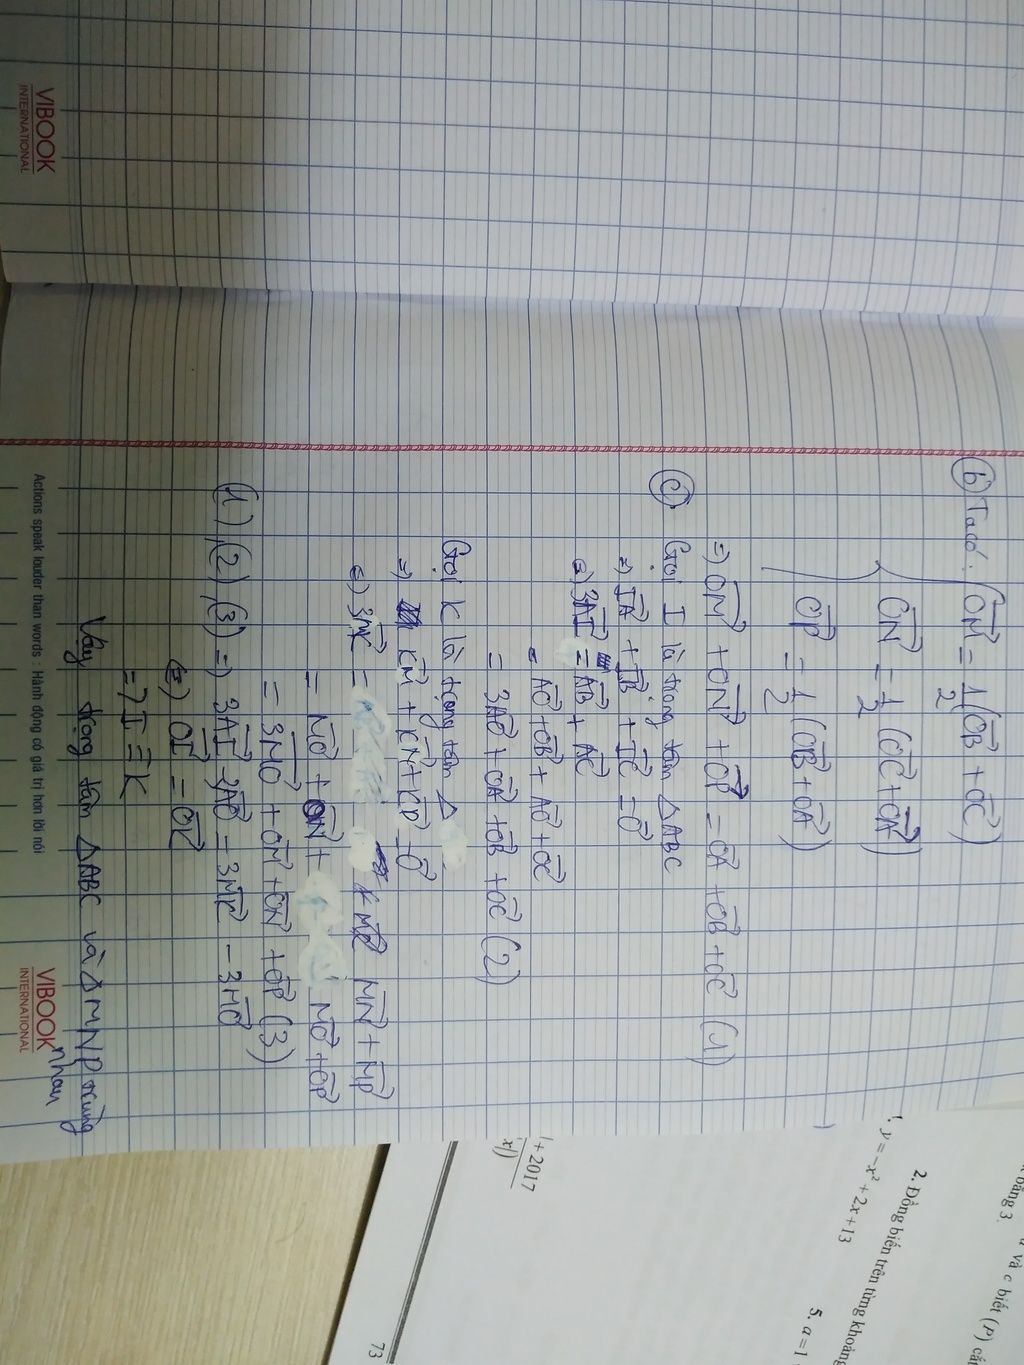 b) Ta có: { OM→ = 1/2 (OB→ + OC→)
ON→ = 1/2 (OC→ + OA→)
OP→ = 1/2 (OB→ + OA→)
=> OM→ + ON→ + OP→ = OA→ + OB→ + OC→ (1)
c) Gọi I là trọng tâm △ABC
=> IA→ + IB→ + IC→ = O→
<=> 3AI→ = AB→ + AC→
= AO→ + OB→ + AO→ + OC→
= 3AO→ + OA→ + OB→ + OC→ (2)
Gọi K là trọng tâm △
=> KM→ + KN→ + KP→ = O→
<=> 3MK→ = MN→ + MP→
= MO→ + ON→ + MO→ + OP→
= 3MO→ + OM→ + ON→ + OP→ (3)
(1), (2), (3) => 3AI→ - 3AO→ = 3MK→ - 3MO→
<=> OI→ = OK→
=> I ≡ K
Vậy trọng tâm △ABC và △MNP trùng
nhau
Actions speak louder than words : Hành động có giá trị hơn lời nói
VIBOOK
INTERNATIONAL
VIBOOK
INTERNATIONAL
và c biết (P) cắt
khoảng 3.
2. Đồng biến trên từng khoảng
1. y = -x² + 2x + 13
5. a = 1
+ 2017
x|)
73